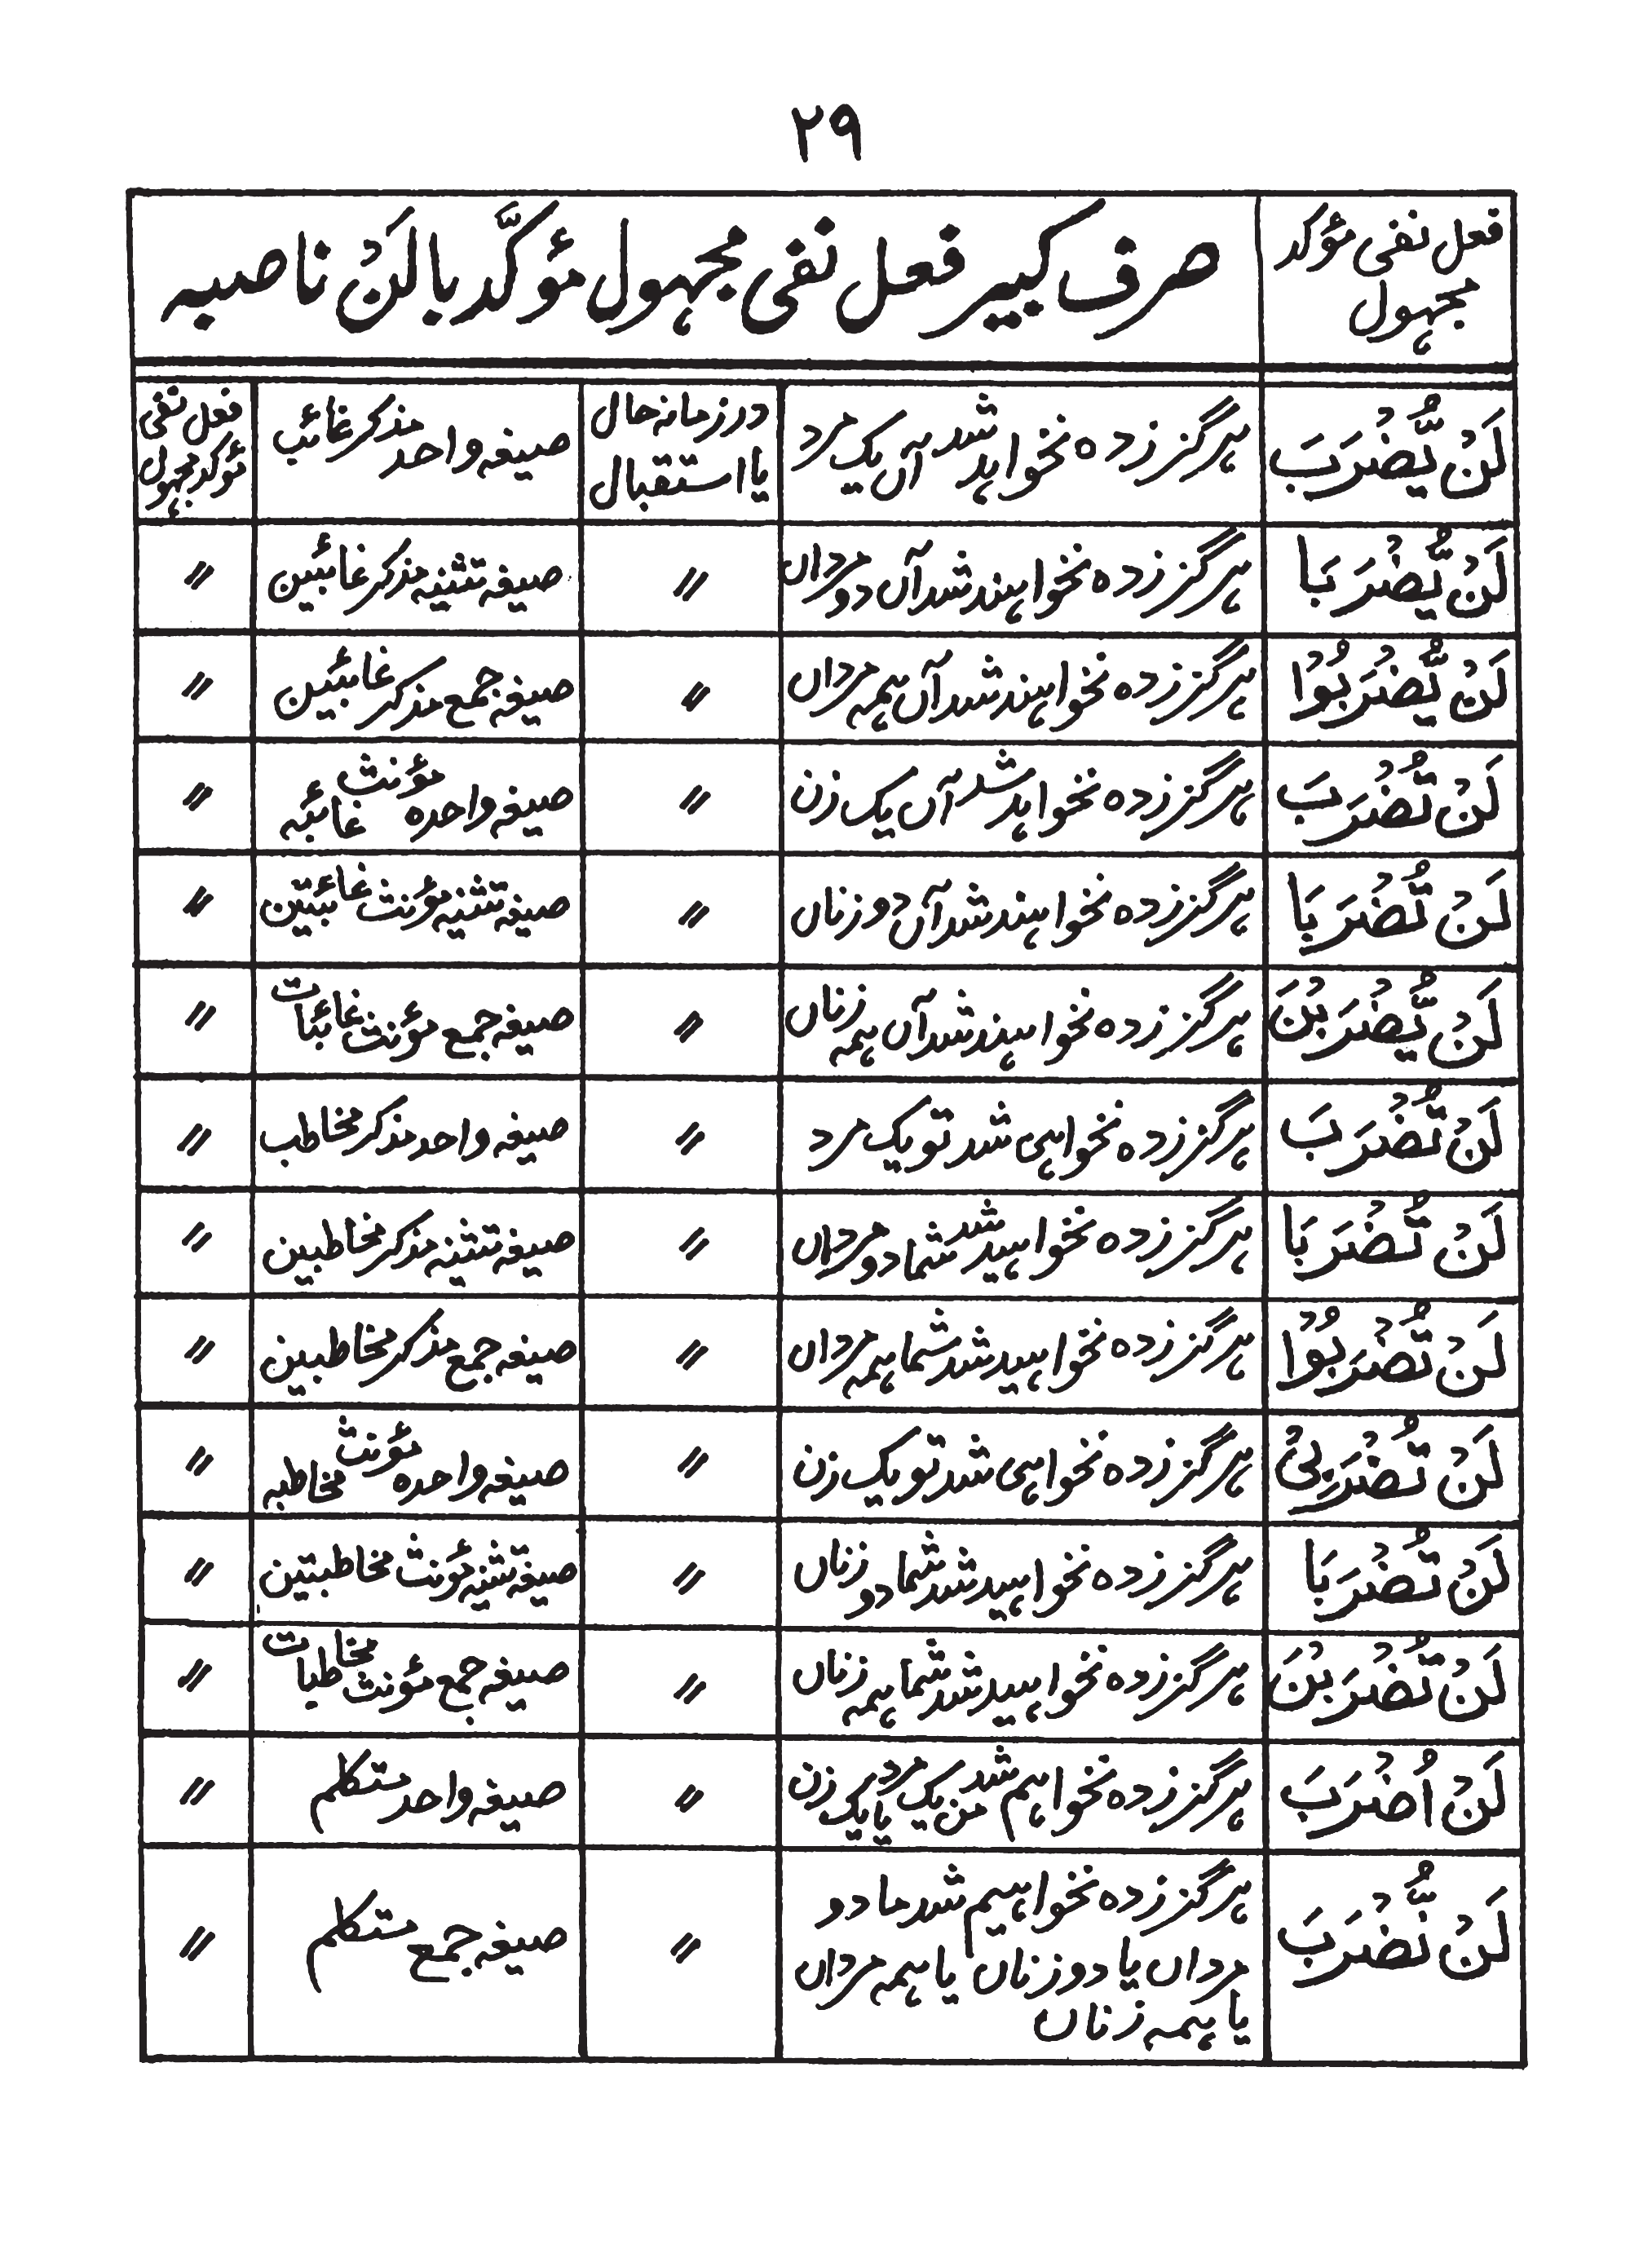 ۲۹
فعل نفی مؤکد مجہول صرف کبیر فعل نفی مجہول مؤکَّد بالَنْ ناصبہ
لَنْ يُّضْرَبَ ہرگز زدہ نخواہد شد آں یک مرد در زمانہ حال یا استقبال صیغہ واحد مذکر غائب فعل نفی مؤکد مجہول
لَنْ يُّضْرَبَا ہرگز زدہ نخواہند شد آں دو مرداں 〃 صیغہ تثنیہ مذکر غائبین 〃
لَنْ يُّضْرَبُوْا ہرگز زدہ نخواہند شد آں ہمہ مرداں 〃 صیغہ جمع مذکر غائبین 〃
لَنْ تُضْرَبَ ہرگز زدہ نخواہد شد آں یک زن 〃 صیغہ واحدہ مؤنث غائبہ 〃
لَنْ تُضْرَبَا ہرگز زدہ نخواہند شد آں دو زناں 〃 صیغہ تثنیہ مؤنث غائبتین 〃
لَنْ يُّضْرَبْنَ ہرگز زدہ نخواہند شد آں ہمہ زناں 〃 صیغہ جمع مؤنث غائبات 〃
لَنْ تُضْرَبَ ہرگز زدہ نخواہی شد تو یک مرد 〃 صیغہ واحد مذکر مخاطب 〃
لَنْ تُضْرَبَا ہرگز زدہ نخواہید شد شما دو مرداں 〃 صیغہ تثنیہ مذکر مخاطبین 〃
لَنْ تُضْرَبُوْا ہرگز زدہ نخواہید شد شما ہمہ مرداں 〃 صیغہ جمع مذکر مخاطبین 〃
لَنْ تُضْرَبِیْ ہرگز زدہ نخواہی شد تو یک زن 〃 صیغہ واحدہ مؤنث مخاطبہ 〃
لَنْ تُضْرَبَا ہرگز زدہ نخواہید شد شما دو زناں 〃 صیغہ تثنیہ مؤنث مخاطبتین 〃
لَنْ تُضْرَبْنَ ہرگز زدہ نخواہید شد شما ہمہ زناں 〃 صیغہ جمع مؤنث مخاطبات 〃
لَنْ اُضْرَبَ ہرگز زدہ نخواہم شد من یک مرد یا یک زن 〃 صیغہ واحد متکلم 〃
لَنْ نُّضْرَبَ ہرگز زدہ نخواہیم شد ما دو 〃 صیغہ جمع متکلم 〃
مرداں یا دو زناں یا ہمہ مرداں
یا ہمہ زناں